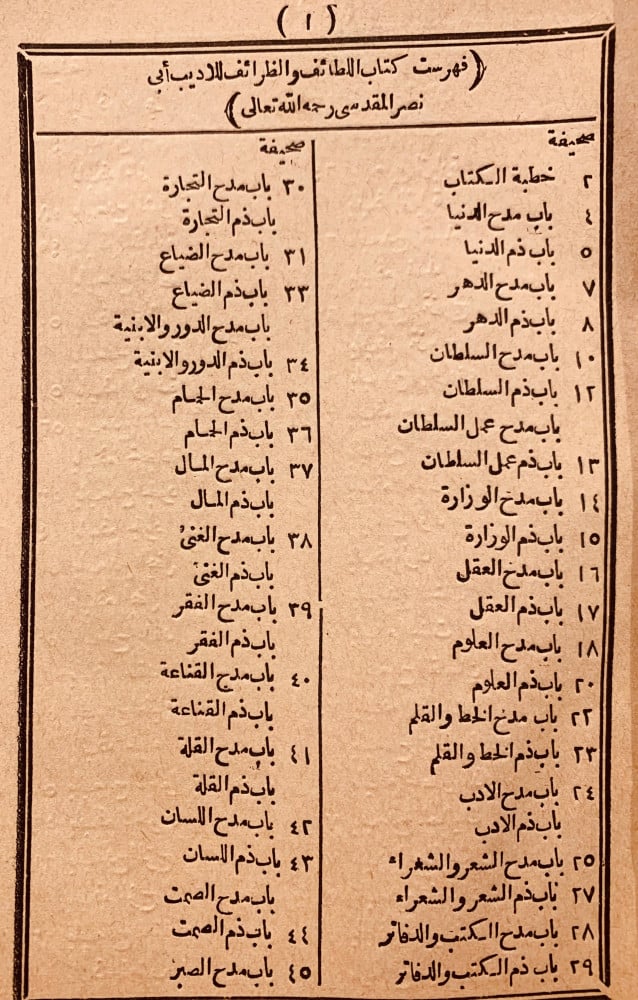 ( ١ )
(فهرست كتاب اللطائف والظرائف للاديب أبي
نصر المقدسى رحمه الله تعالى)
صحيفة
٢ خطبة الكتاب
٤ باب مدح الدنيا
٥ باب ذم الدنيا
٧ باب مدح الدهر
٨ باب ذم الدهر
١٠ باب مدح السلطان
١٢ باب ذم السلطان
باب مدح عمل السلطان
١٣ باب ذم عمل السلطان
١٤ باب مدح الوزارة
١٥ باب ذم الوزارة
١٦ باب مدح العقل
١٧ باب ذم العقل
١٨ باب مدح العلوم
٢٠ باب ذم العلوم
٢٢ باب مدح الخط والقلم
٢٣ باب ذم الخط والقلم
٢٤ باب مدح الادب
باب ذم الادب
٢٥ باب مدح الشعر والشعراء
٢٧ باب ذم الشعر والشعراء
٢٨ باب مدح الكتب والدفاتر
٢٩ باب ذم الكتب والدفاتر
صحيفة
٣٠ باب مدح التجارة
باب ذم التجارة
٣١ باب مدح الضياع
٣٣ باب ذم الضياع
باب مدح الدور والابنية
٣٤ باب ذم الدور والابنية
٣٥ باب مدح الحمام
٣٦ باب ذم الحمام
٣٧ باب مدح المال
باب ذم المال
٣٨ باب مدح الغنى
باب ذم الغنى
٣٩ باب مدح الفقر
باب ذم الفقر
٤٠ باب مدح القناعة
باب ذم القناعة
٤١ باب مدح القلة
باب ذم القلة
٤٢ باب مدح اللسان
٤٣ باب ذم اللسان
باب مدح الصمت
٤٤ باب ذم الصمت
٤٥ باب مدح الصبر